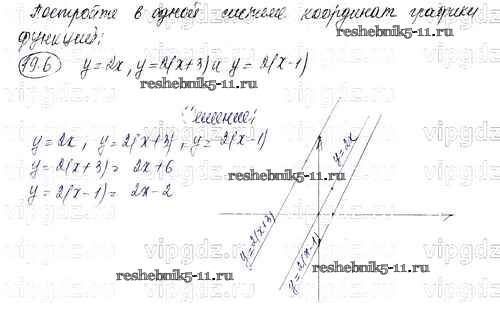 Постройте в одной системе координат графики
функций:
19.6 y=2x, y=2(x+3) и y=2(x-1)
Решение:
y=2x, y=2(x+3), y=2(x-1)
y=2(x+3)= 2x+6
y=2(x-1)= 2x-2
y=2x
y=2(x+3)
y=2(x-1)
reshebnik5-11.ru
reshebnik5-11.ru
reshebnik5-11.ru
reshebnik5-11.ru
reshebnik5-11.ru
vipgdz.ru